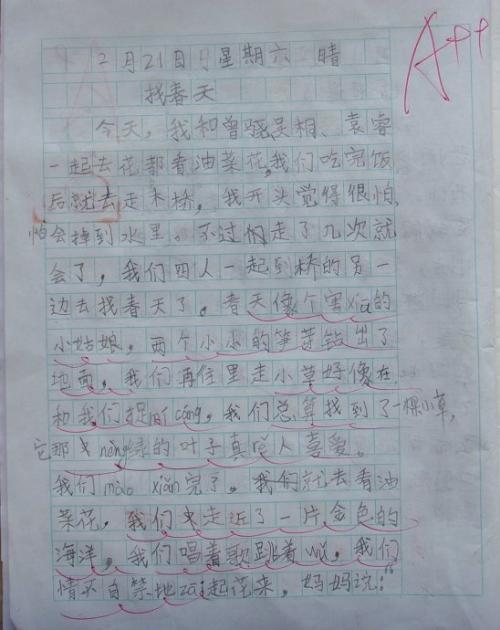 A++
2月21日 星期六 晴
找春天
今天,我和曾骏吴相、袁睿
一起去花都看油菜花,我们吃完饭
后就去走木桥,我开头觉得很怕,
怕会掉到水里。不过们走了几次就
会了,我们四人一起到桥的另一
边去找春天了。春天像个害xiū的
小姑娘,两个小小的笋芽钻出了
地面,我们再往里走小草好像在
和我们捉mí cáng,我们总算找到了一棵小草,
它那nèng绿的叶子真让人喜爱。
我们mào xiǎn完了。我们就去看油
菜花,我们走近了一片金色的
海洋,我们唱着歌跳着wǔ,我们
情不自禁地zāi起花来,妈妈说:“